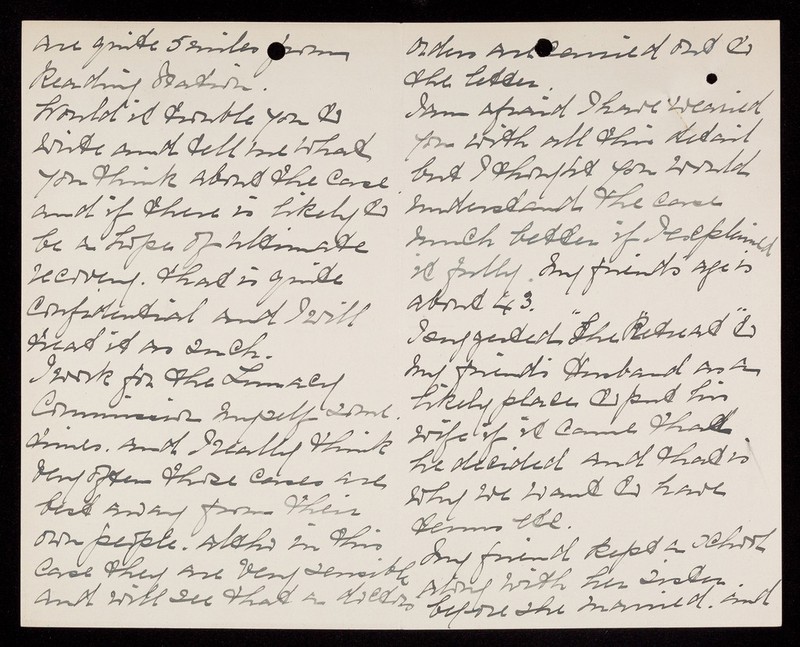 are quite 5 miles from
Reading Station.
Would it trouble you to
write and tell me what
you think about the case
and if there is likely to
be a hope of ultimate
recovery. that is quite
confidential and I will
treat it as such.
I work for the Lunacy
Commission myself some
times. and I really think
very often these cases are
best away from their
own people. altho in this
case they are very sensible
and will see that a doctors
orders are carried out to
the letter.
I am afraid I have wearied
you with all this detail
but I thought you would
understand the case
much better if I explained
it fully. My friends age is
about 43.
I suggested "The Retreat" to
my friend's Husband as a
likely place to put his
wife if it came that
he decided and that is
why we want to have
terms etc.
My friend kept a school
along with her sister
before she married. and